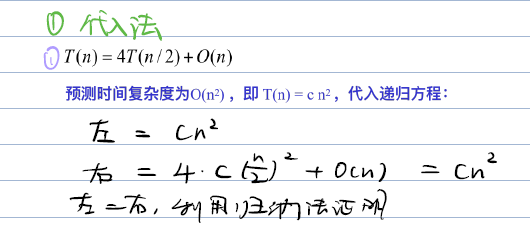 ① 代入法
① T(n) = 4T(n/2)+O(n)
预测时间复杂度为O(n²)，即 T(n) = c n²，代入递归方程：
左 = Cn²
右 = 4·C(n/2)² + O(n) = Cn²
左=右，利用归纳法证明